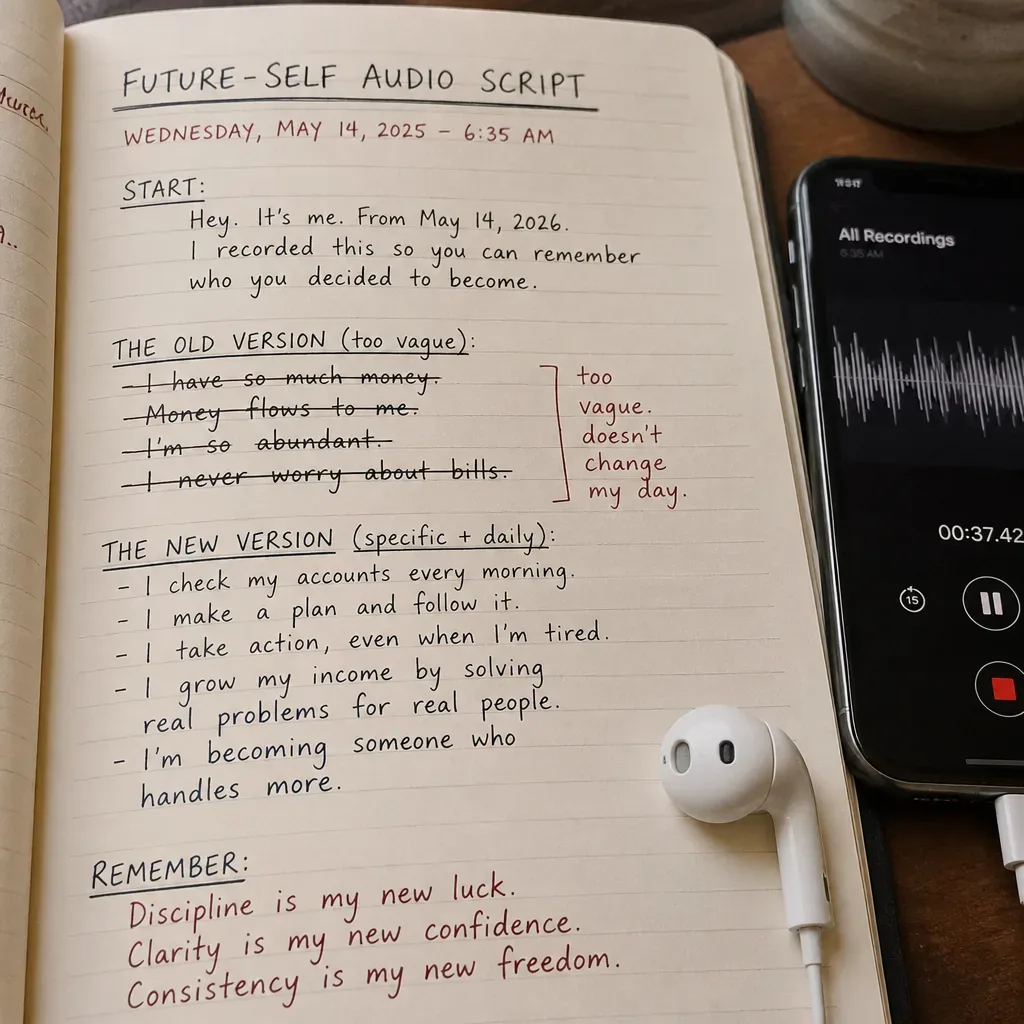 FUTURE-SELF AUDIO SCRIPT
WEDNESDAY, MAY 14, 2025 – 6:35 AM
START:
Hey. It's me. From May 14, 2026.
I recorded this so you can remember
who you decided to become.
THE OLD VERSION (too vague):
- I have so much money.
- Money flows to me.
- I'm so abundant.
- I never worry about bills.
too
vague.
doesn't
change
my day.
THE NEW VERSION (specific + daily):
- I check my accounts every morning.
- I make a plan and follow it.
- I take action, even when I'm tired.
- I grow my income by solving
real problems for real people.
- I'm becoming someone who
handles more.
REMEMBER:
Discipline is my new luck.
Clarity is my new confidence.
Consistency is my new freedom.
All Recordings
6:35 AM
00:37.42
15